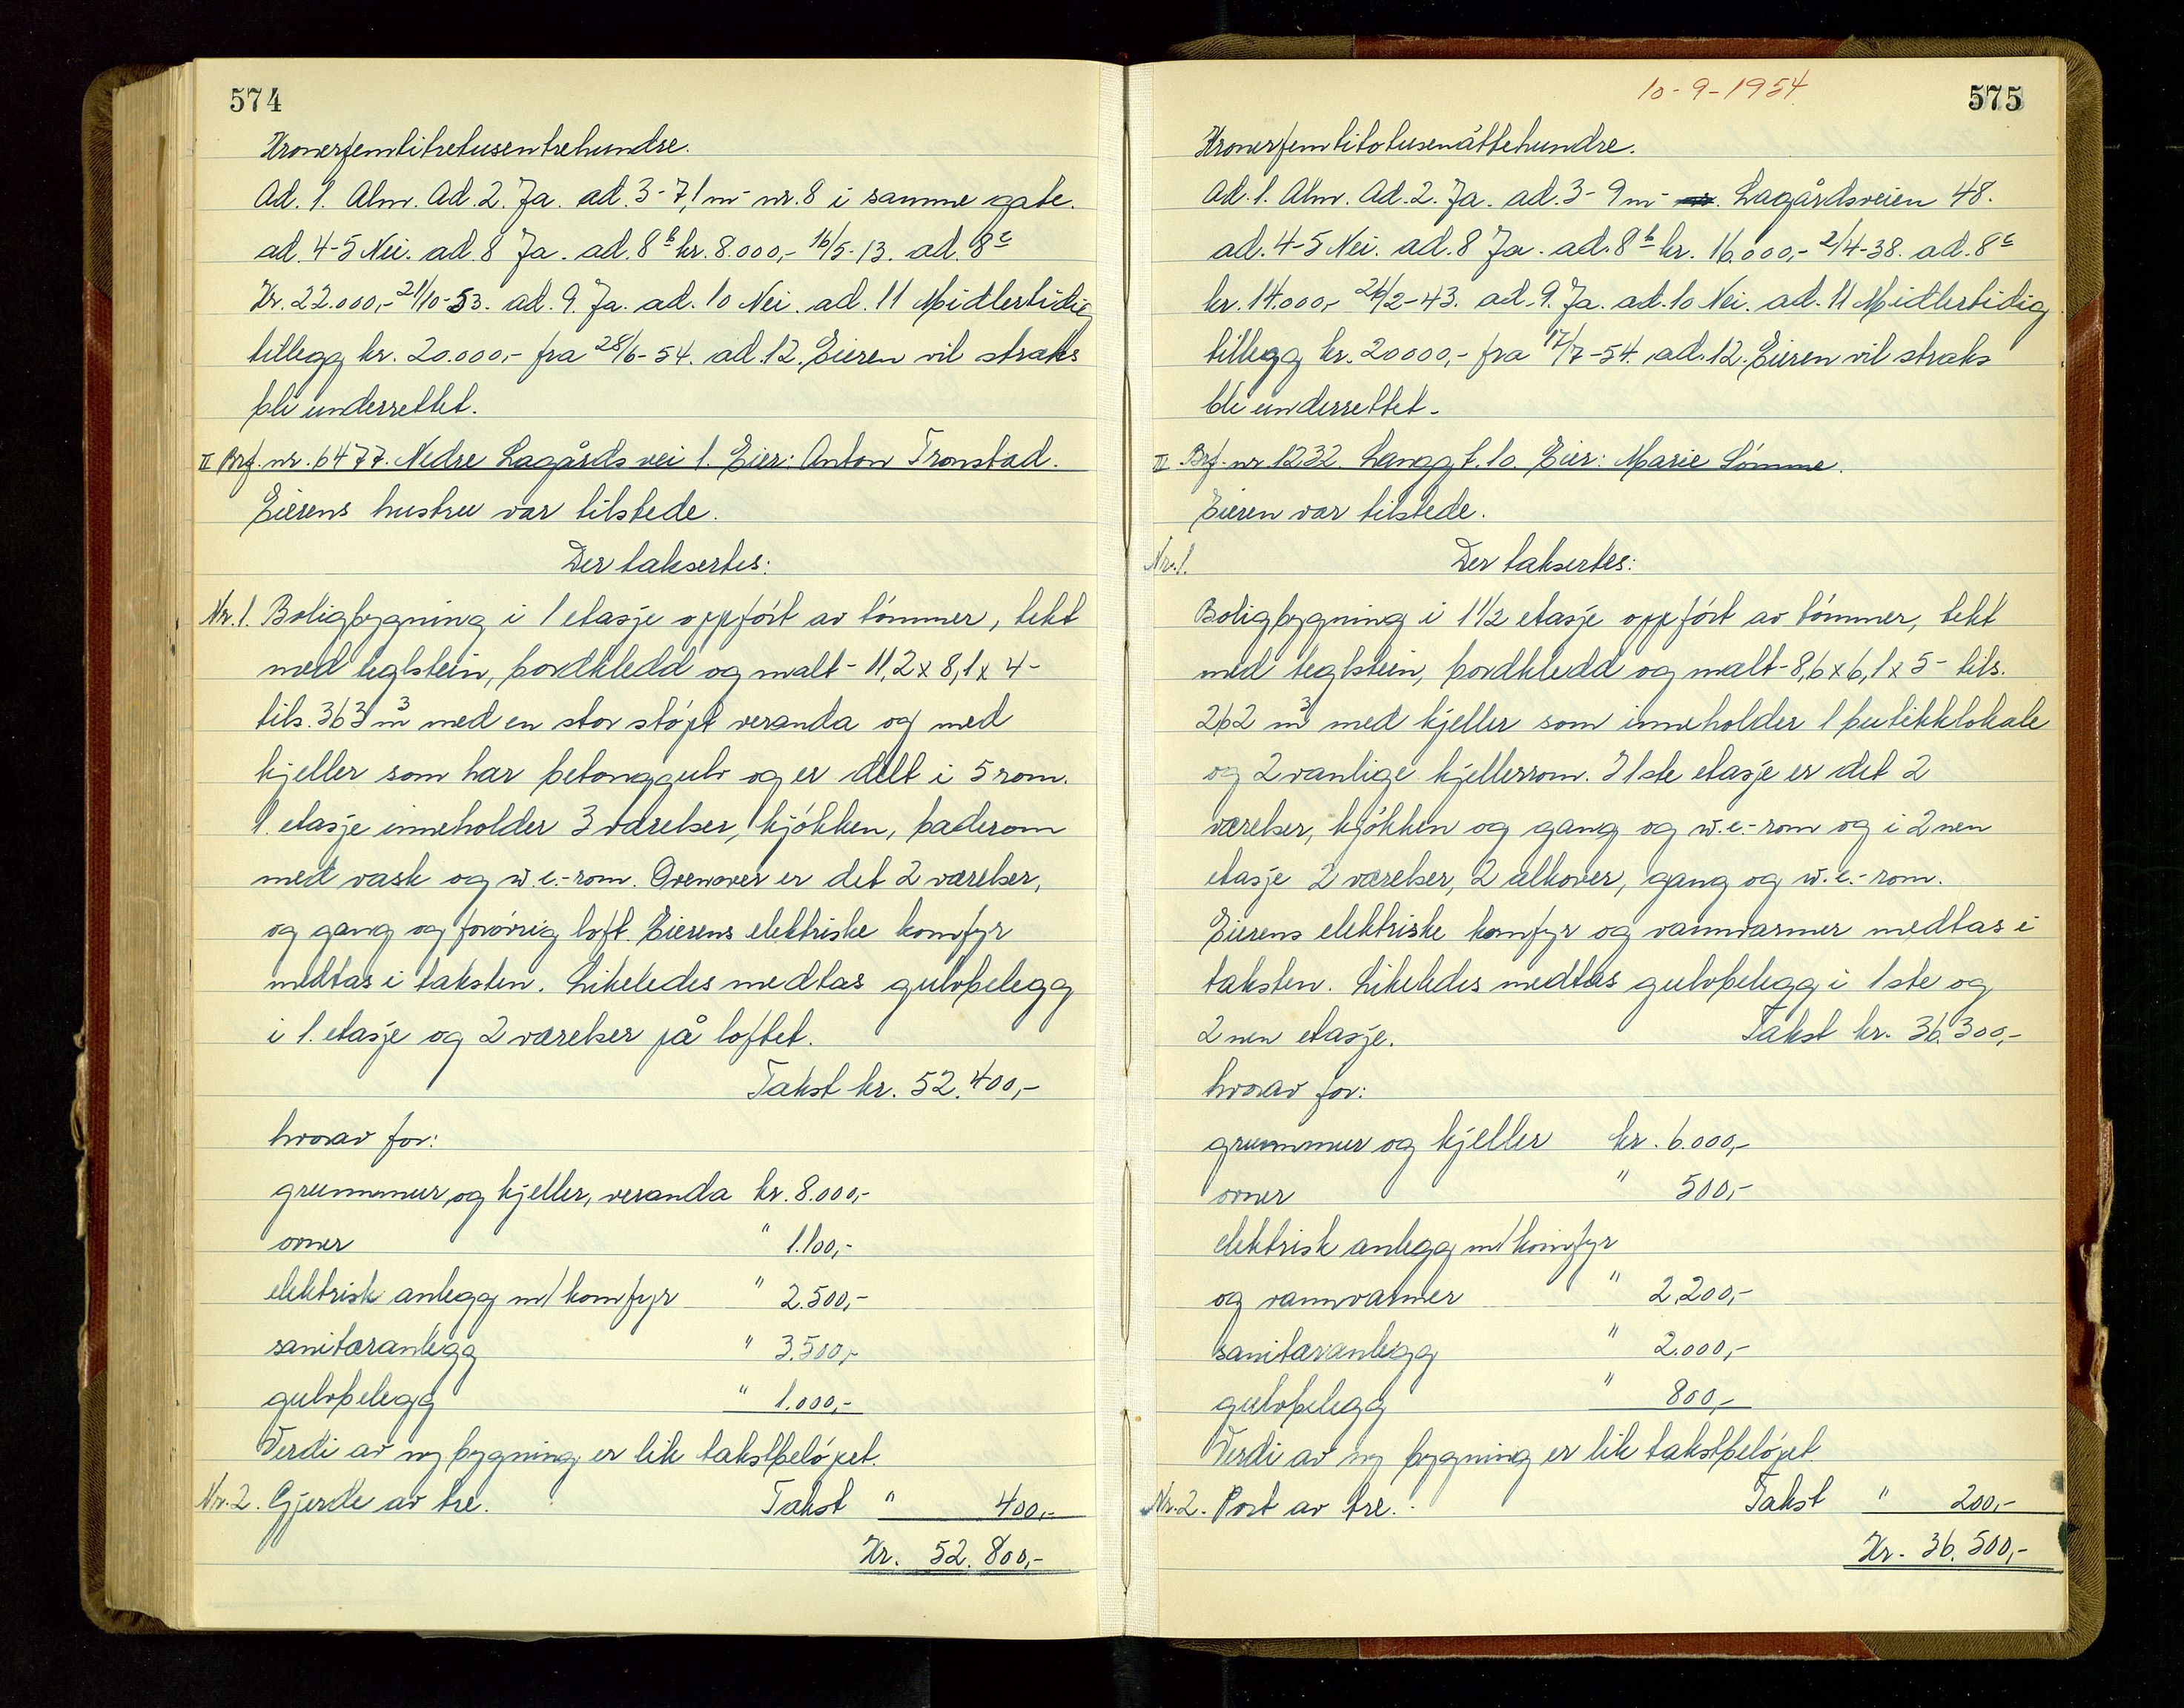 574
Kronerfemtitretusentrehundre.
Ad. 1. Alm. Ad. 2. Ja. ad. 3 - 7,1 m - nr. 8 i samme gate.
ad. 4-5 Nei. ad. 8 Ja. ad. 8 b kr. 8.000,- 16/5-13. ad. 8 c
Kr. 22.000,- 21/10-53. ad. 9. Ja. ad. 10 Nei. ad. 11 Midlertidig
tillegg kr. 20.000,- fra 28/6-54. ad. 12. Eieren vil straks
bli underrettet.
II Brf. nr. 6477. Nedre Lagårds vei 1. Eier: Anton Tronstad.
Eierens hustru var tilstede.
Der taksertes:
Nr. 1. Boligbygning i 1 etasje oppført av tømmer, tekt
med teglstein, bordkledd og malt - 11,2 x 8,1 x 4 -
tils. 363 m3 med en stor støpt veranda og med
kjeller som har betonggulv og er delt i 5 rom.
1. etasje inneholder 3 værelser, kjøkken, baderom
med vask og w.c.-rom. Ovenover er det 2 værelser,
og gang og forøvrig loft. Eierens elektriske komfyr
medtas i taksten. Likeledes medtas gulvbelegg
i 1. etasje og 2 værelser på loftet.
Takst kr. 52.400,-
hvorav for:
grunnmur og kjeller, veranda kr. 8.000,-
ovner " 1.100,-
elektrisk anlegg m/ komfyr " 2.500,-
sanitæranlegg " 3.500,-
gulvbelegg " 1.000,-
Verdi av ny bygning er lik takstbeløpet.
Nr. 2. Gjerde av tre. Takst " 400,-
Kr. 52.800,-
10-9-1954
575
Kronerfemtitotusenåttehundre.
Ad. 1. Alm. Ad. 2. Ja. ad. 3 - 9 m - Lagårdsveien 48.
ad. 4-5 Nei. ad. 8 Ja. ad. 8 b kr. 16.000,- 2/4-38. ad. 8 c
kr. 14.000,- 26/2-43. ad. 9. Ja. ad. 10 Nei. ad. 11 Midlertidig
tillegg kr. 20000,- fra 17/7-54. ad. 12. Eieren vil straks
bli underrettet.
II Brf. nr. 1232. Langgt. 10. Eier: Marie Sømme.
Eieren var tilstede.
Nr. 1. Der taksertes:
Boligbygning i 1 1/2 etasje oppført av tømmer, tekt
med teglstein, bordkledd og malt - 8,6 x 6,1 x 5 - tils.
262 m3 med kjeller som inneholder 1 butikklokale
og 2 vanlige kjellerrom. I 1ste etasje er det 2
værelser, kjøkken og gang og w.c.-rom og i 2nen
etasje 2 værelser, 2 alkover, gang og w.c.-rom.
Eierens elektriske komfyr og vannvarmer medtas i
taksten. Likeledes medtas gulvbelegg i 1ste og
2nen etasje. Takst kr. 36.300,-
hvorav for:
grunnmur og kjeller kr. 6.000,-
ovner " 500,-
elektrisk anlegg m/ komfyr
og vannvarmer " 2.200,-
sanitæranlegg " 2.000,-
gulvbelegg " 800,-
Verdi av ny bygning er lik takstbeløpet.
Nr. 2. Port av tre. Takst " 200,-
Kr. 36.500,-